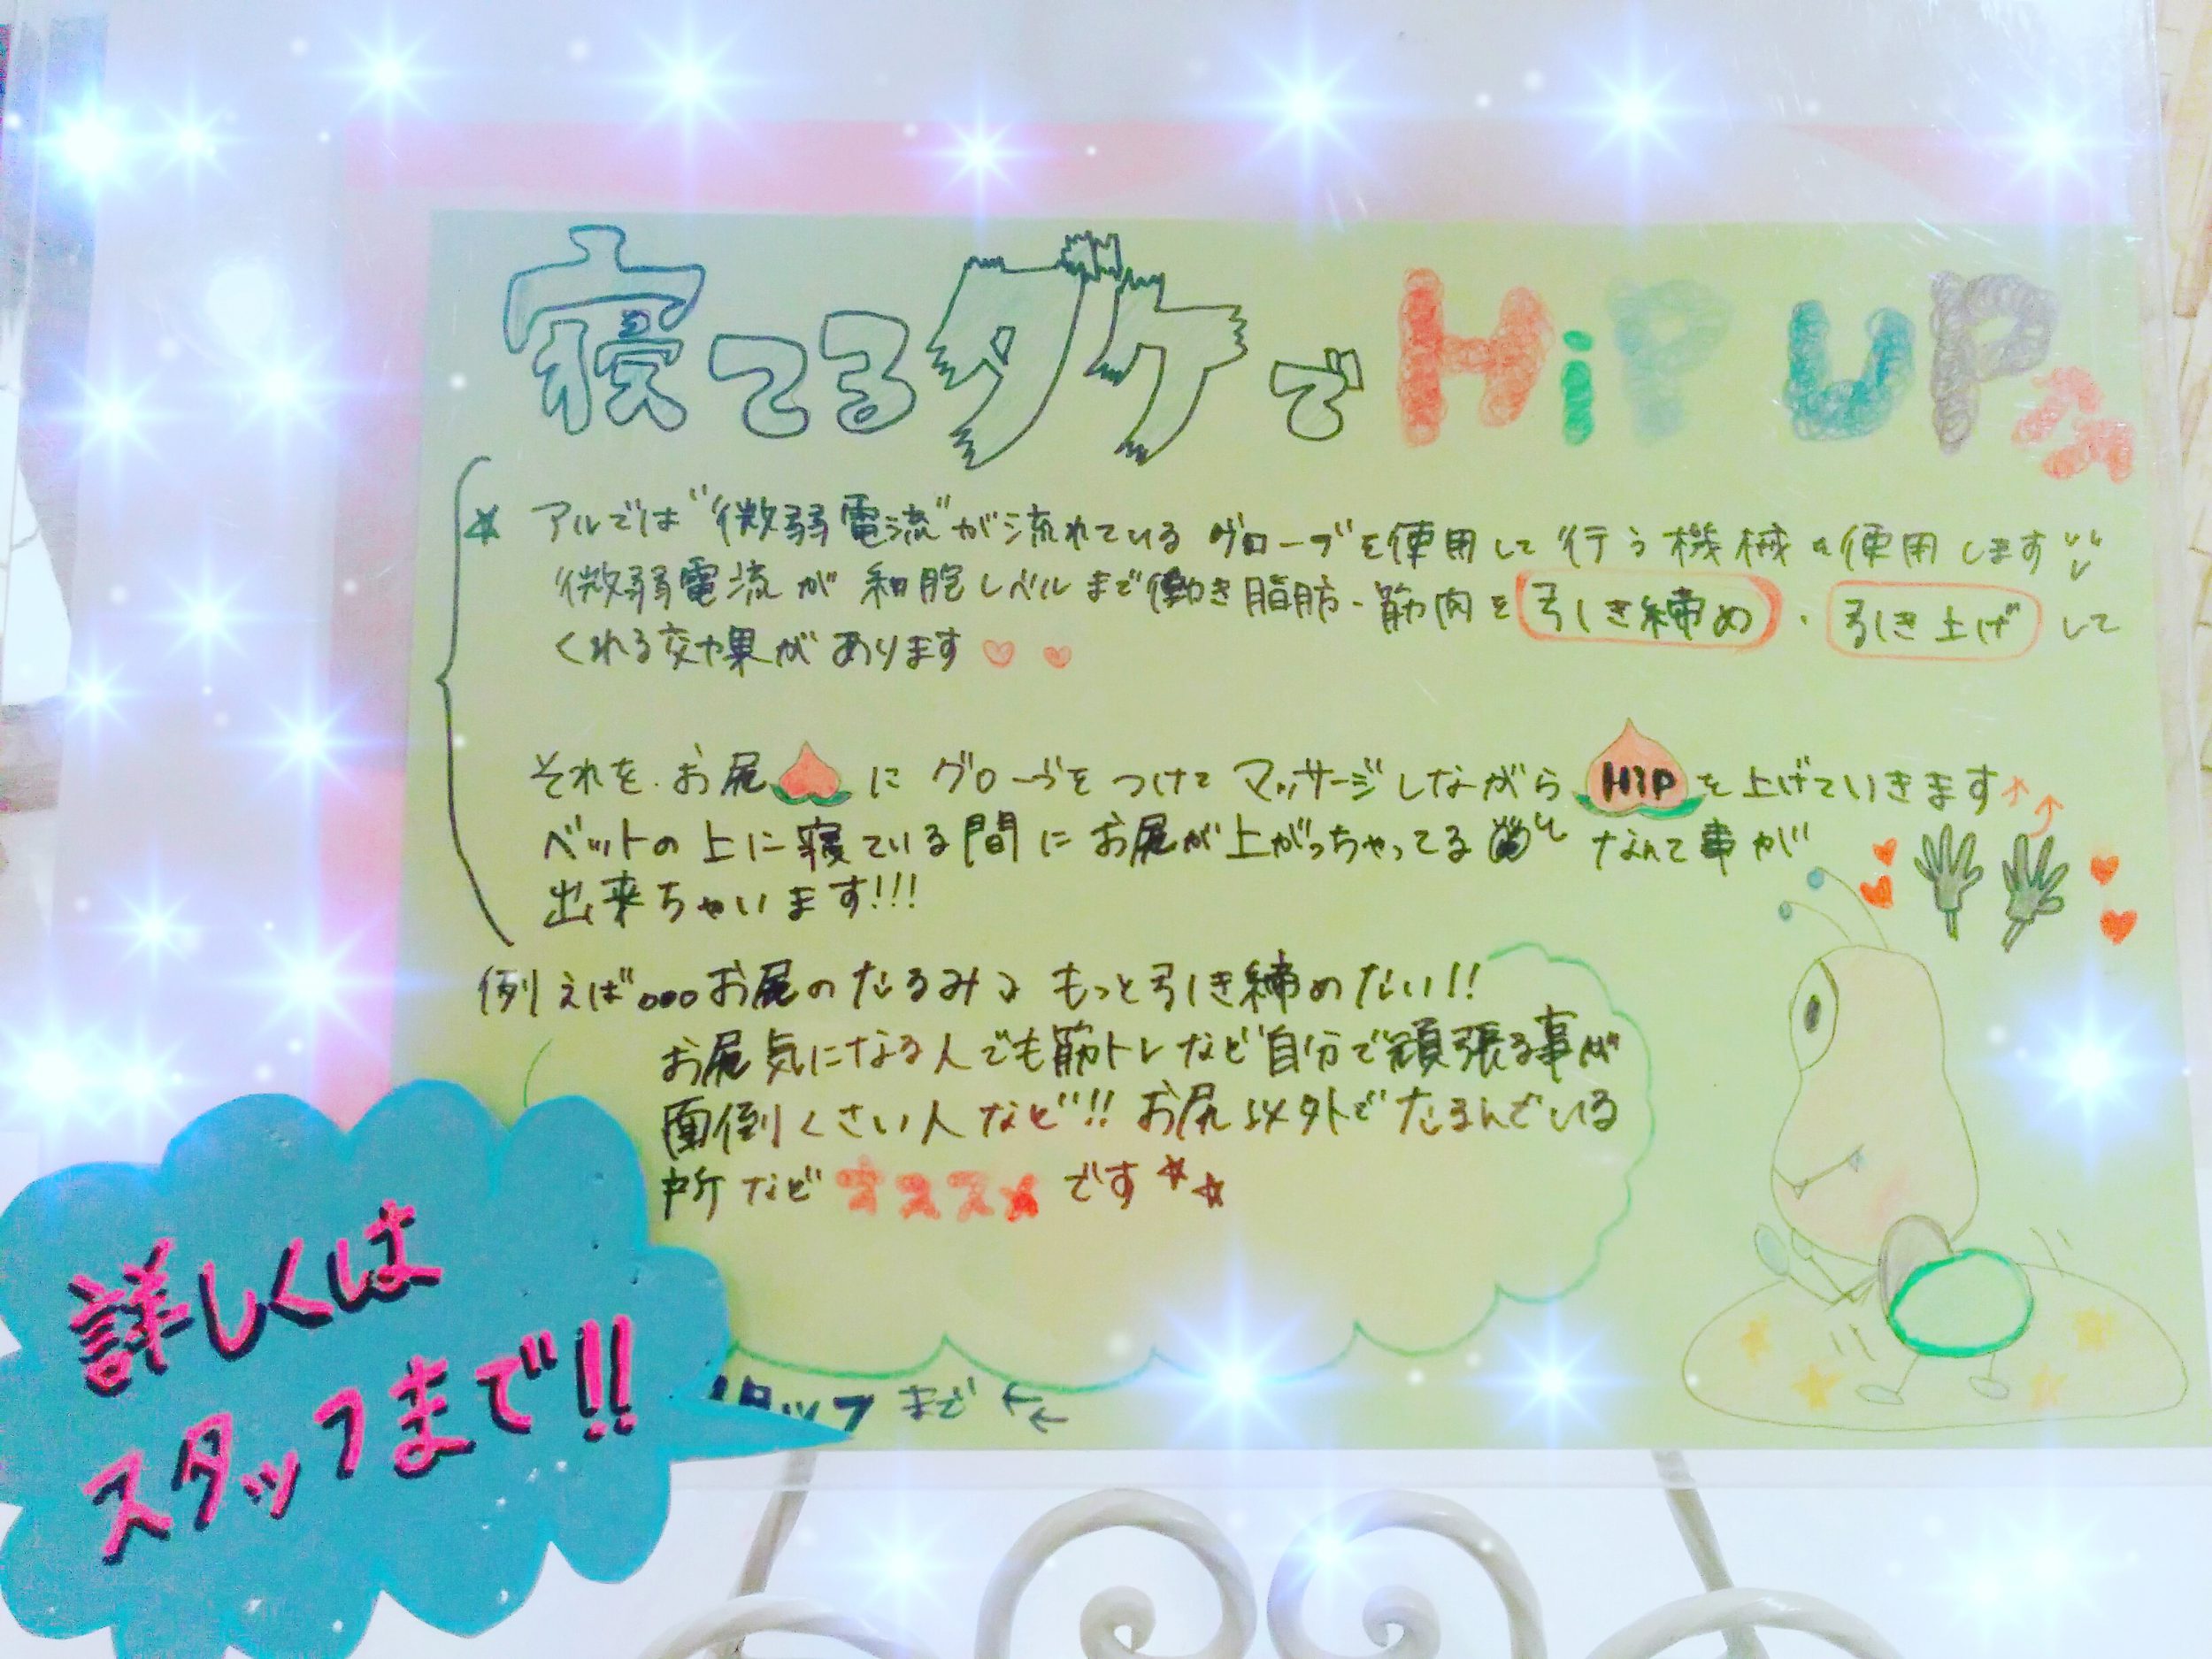 寝てるダケでHiP UP
☆ アルでは"微弱電流"が流れているグローブを使用して行う機械を使用します
微弱電流が細胞レベルまで働き脂肪・筋肉を引き締め・引き上げして
くれる効果があります♡♡
それを、お尻にグローブをつけてマッサージしながらHiPを上げていきます↑↑
ベットの上に寝ている間にお尻が上がっちゃってるなんて事が
出来ちゃいます!!!
例えば。。。お尻のたるみをもっと引き締めたい!!
お尻気になる人でも筋トレなど自分で頑張る事が
面倒くさい人など!!お尻以外でたるんでいる
所などオススメです☆☆
スタッフまで←←
詳しくは
スタッフまで!!